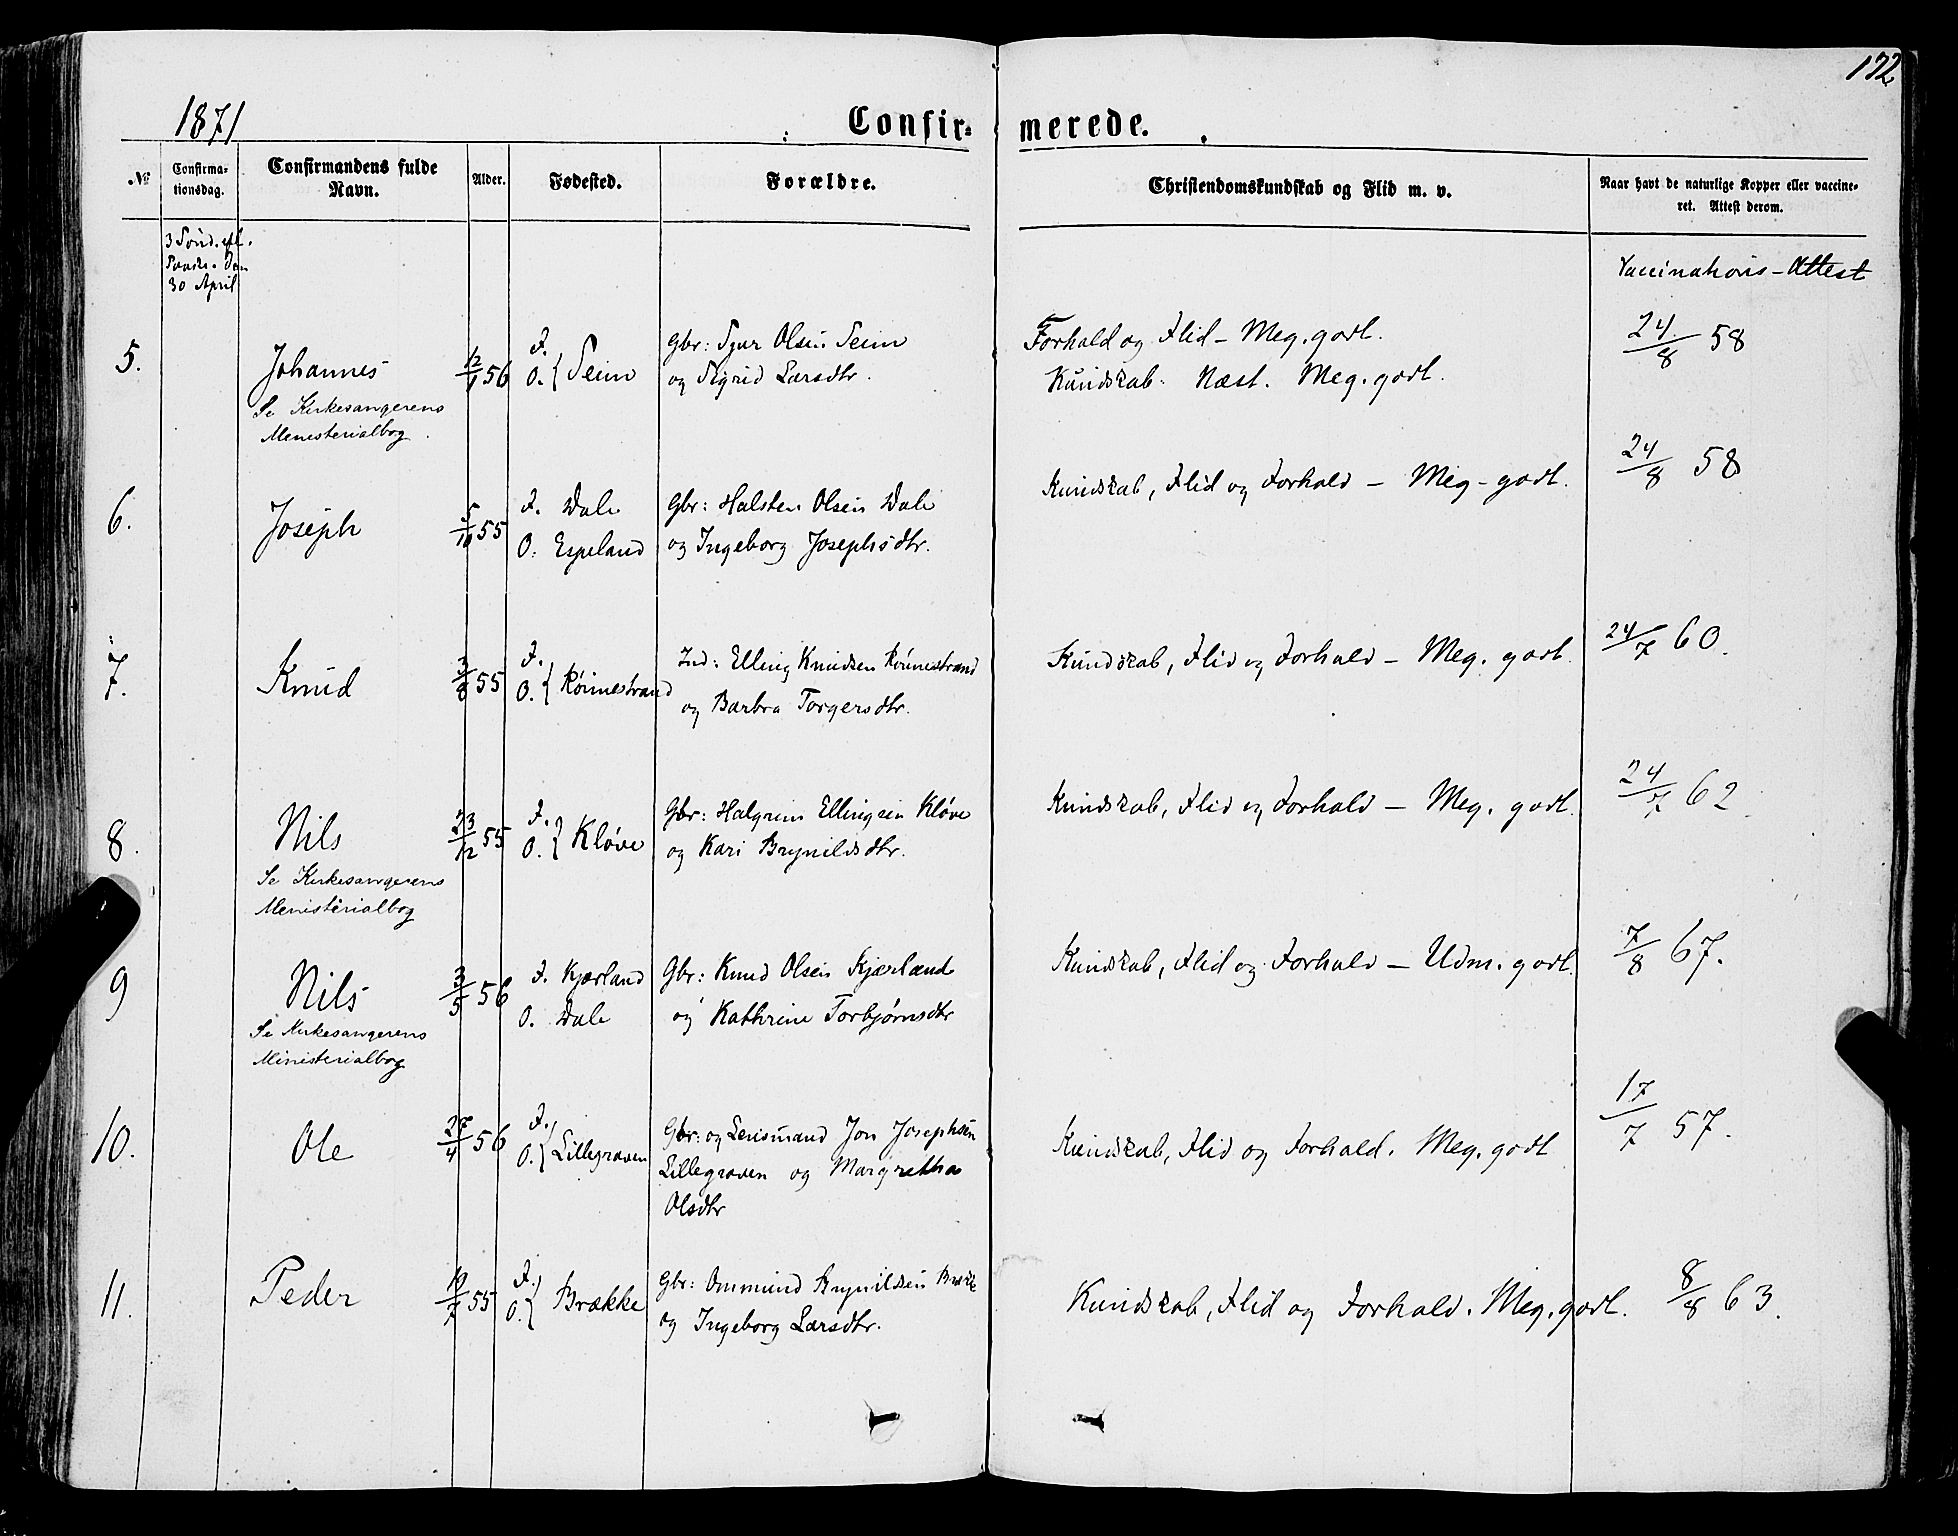 172
1871
Confir- merede.
№
Confirma-
tionsdag.
Confirmandens fulde
Navn.
Alder.
Fødested.
Forældre.
Christendomskundskab og Flid m. v.
Naar havt de naturlige Kopper eller vaccine-
ret. Attest derom.
3 Sønd. eft.
Paaske. den
30 April
Vaccinations-Attest
5.
Johannes
Se Kirkesangerens
Menisterialbog.
12/1 56
F.
O. { Seim
Gbr: Sjur Olsen Seim
og Sigrid Larsdtr.
Forhold og Flid - Meg. godt.
Kundskab: Næst. Meg. godt.
24/8 58
6.
Joseph
5/10 55
F. Dale
O: Espeland
Gbr: Halsten Olsen Dale
og Ingeborg Josephsdtr.
Kundskab, Flid og Forhold - Meg - godt.
24/8 58
7.
Knud
3/8 55
F.
O. { Rönnestrand
Ind: Elling Knudsen Rönnestrand
og Barbra Torgersdtr.
Kundskab, Flid og Forhold - Meg. godt.
24/7 60.
8.
Nils
Se Kirkesangerens
Menisterialbog
23/12 55
F.
O. } Kløve
Gbr: Halgrim Ellingsen Kløve
og Kari Brynildsdtr.
Kundskab, Flid og Forhold - Meg. godt.
24/7 62
9
Nils
Se Kirkesangerens
Ministerialbog
3/5 56
F. Kjærland
O. Dale
Gbr: Knud Olsen Kjærland
og Kathrine Torbjørnsdtr
Kundskab, Flid og Forhold - Udm. godt.
7/8 67.
10.
Ole
27/4 56
F.
O. { Lillegraven
Gbr: og Lensmand Jon Josephsen
Lillegraven og Margretha
Olsdtr
Kundskab, Flid og Forhold. Meg. godt
17/7 57.
11.
Peder
10/7 55
F.
O. { Brække
Gbr: Ommund Brynildsen Bræk
og Ingeborg Larsdtr.
Kundskab, Flid og Forhold. Meg. godt.
8/8 63.